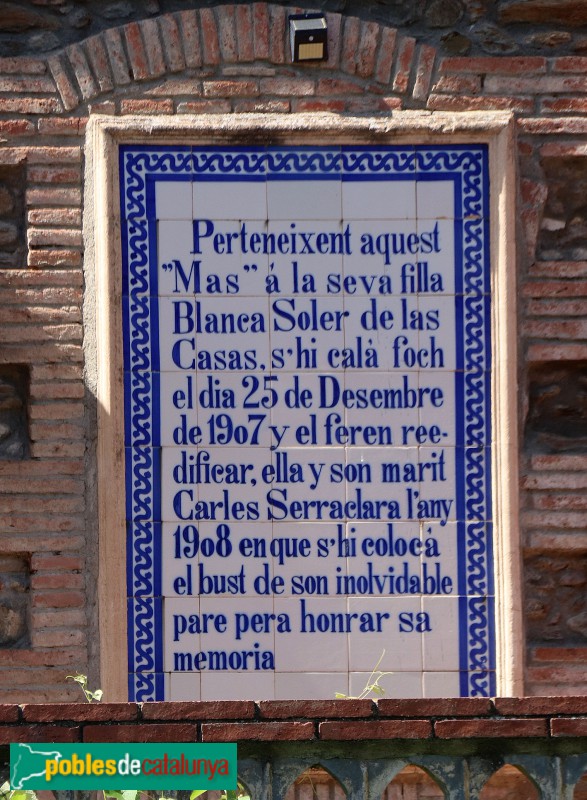 Perteneixent aquest
"Mas" á la seva filla
Blanca Soler de las
Casas, s'hi calà foch
el dia 25 de Desembre
de 1907 y el feren ree-
dificar, ella y son marit
Carles Serraclara l'any
1908 en que s'hi colocá
el bust de son inolvidable
pare pera honrar sa
memoria
poblesdecatalunya